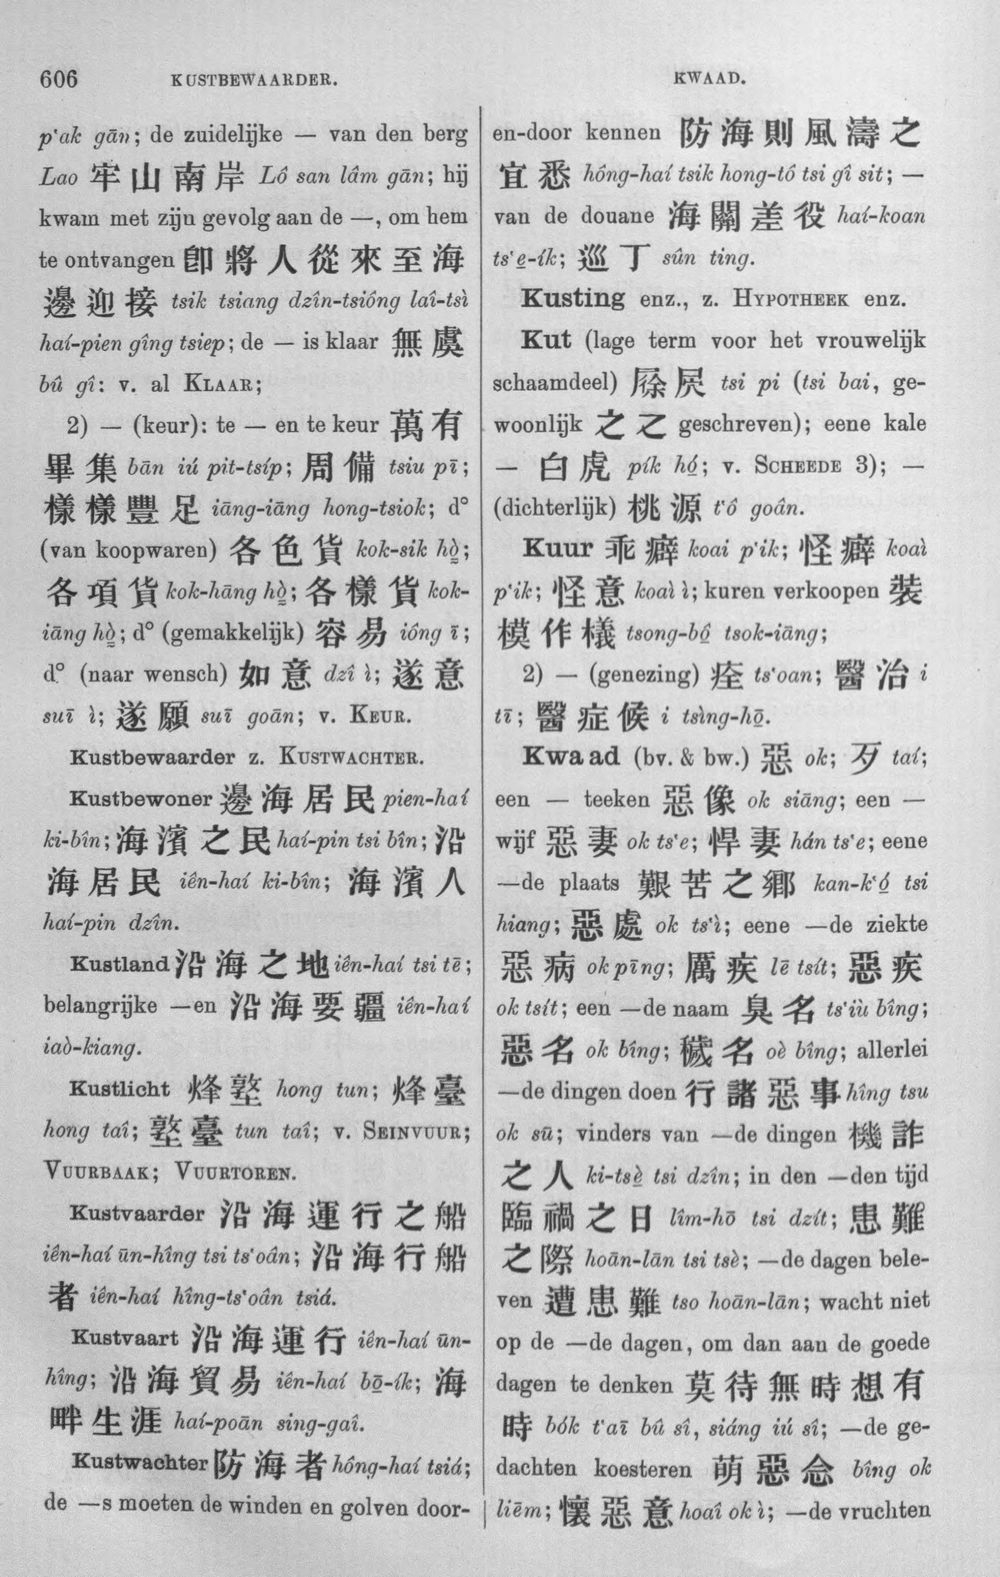 606
KUSTBEWAARDER.
KWAAD.
p‘ak gān; de zuidelijke — van den berg
Lao 牢山南岸 Lô san lâm gān; hij
kwam met zijn gevolg aan de —, om hem
te ontvangen 卽將人從來至海
邊迎接 tsik tsiang dzîn-tsiông laî-tsì
haí-pien gîng tsiep; de — is klaar 無虞
bû gî: v. al KLAAR;
2) — (keur): te — en te keur 萬有
畢集 bān iú pit-tsíp; 周備 tsiu pī;
樣樣豐足 iāng-iāng hong-tsiok; d°
(van koopwaren) 各色貨 kok-sik hò̤;
各項貨 kok-hāng hò̤; 各樣貨 kok-
iāng hò̤; d° (gemakkelijk) 容易 iông ī;
d° (naar wensch) 如意 dzî ì; 遂意
suī ì; 遂願 suī goān; v. KEUR.
Kustbewaarder z. KUSTWACHTER.
Kustbewoner 邊海居民 pien-haí
ki-bîn; 海濱之民 haí-pin tsi bîn; 沿
海居民 iên-haí ki-bîn; 海濱人
haí-pin dzîn.
Kustland 沿海之地 iên-haí tsi tē;
belangrijke —en 沿海要疆 iên-haí
iaò-kiang.
Kustlicht 烽墪 hong tun; 烽臺
hong taî; 墪臺 tun taî; v. SEINVUUR;
VUURBAAK; VUURTOREN.
Kustvaarder 沿海運行之船
iên-haí ūn-hîng tsi ts‘oân; 沿海行船
者 iên-haí hîng-ts‘oân tsiá.
Kustvaart 沿海運行 iên-haí ūn-
hîng; 沿海貿易 iên-haí bō̤-ík; 海
畔生涯 haí-poān sing-gaî.
Kustwachter 防海者 hông-haí tsiá;
de —s moeten de winden en golven door-
en-door kennen 防海則風濤之
宜悉 hông-haí tsik hong-tô tsi gî sit; —
van de douane 海關差役 haí-koan
ts‘e̤-ík; 巡丁 sûn ting.
Kusting enz., z. HYPOTHEEK enz.
Kut (lage term voor het vrouwelijk
schaamdeel) tsi pi (tsi bai, ge-
woonlijk 之乙 geschreven); eene kale
— 白虎 pík hó̤; v. SCHEEDE 3); —
(dichterlijk) 桃源 t‘ô goân.
Kuur 乖癖 koai p‘ik; 怪癖 koaì
p‘ik; 怪意 koaì ì; kuren verkoopen 裝
模作樣 tsong-bô̤ tsok-iāng;
2) — (genezing) 痊 ts‘oan; 醫治 i
tī; 醫症候 i tsìng-hō̤.
Kwaad (bv. & bw.) 惡 ok; 歹 taí;
een — teeken 惡像 ok siāng; een —
wijf 惡妻 ok ts‘e; 悍妻 hán ts‘e; eene
—de plaats 艱苦之鄉 kan-k‘ó̤ tsi
hiang; 惡處 ok ts‘ì; eene —de ziekte
惡病 ok pīng; 厲疾 lē tsít; 惡疾
ok tsít; een —de naam 臭名 ts‘iù bîng;
惡名 ok bîng; 穢名 oè bîng; allerlei
—de dingen doen 行諸惡事 hîng tsu
ok sū; vinders van —de dingen 機詐
之人 ki-tsè̤ tsi dzîn; in den —den tijd
臨禍之日 lîm-hō tsi dzít; 患難
之際 hoān-lān tsi tsè; —de dagen bele-
ven 遭患難 tso hoān-lān; wacht niet
op de —de dagen, om dan aan de goede
dagen te denken 莫待無時想有
時 bók t‘aī bû sî, siáng iú sî; —de ge-
dachten koesteren 萌惡念 bîng ok
liēm; 懷惡意 hoaî ok ì; —de vruchten